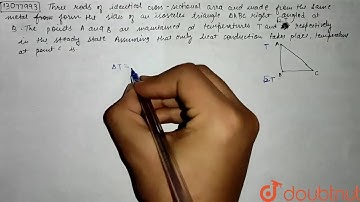 13077993 Three rods of identical cross-sectional area and made from the same
metal from form the sides of an isosceles triangle ΔABC right angled at
B. The points A and B are maintained at temperatures T and respectively
in the steady state. Assuming that only heat conduction takes place, temperature
at point C is
ΔT =
T A
T
B C
doubtnut